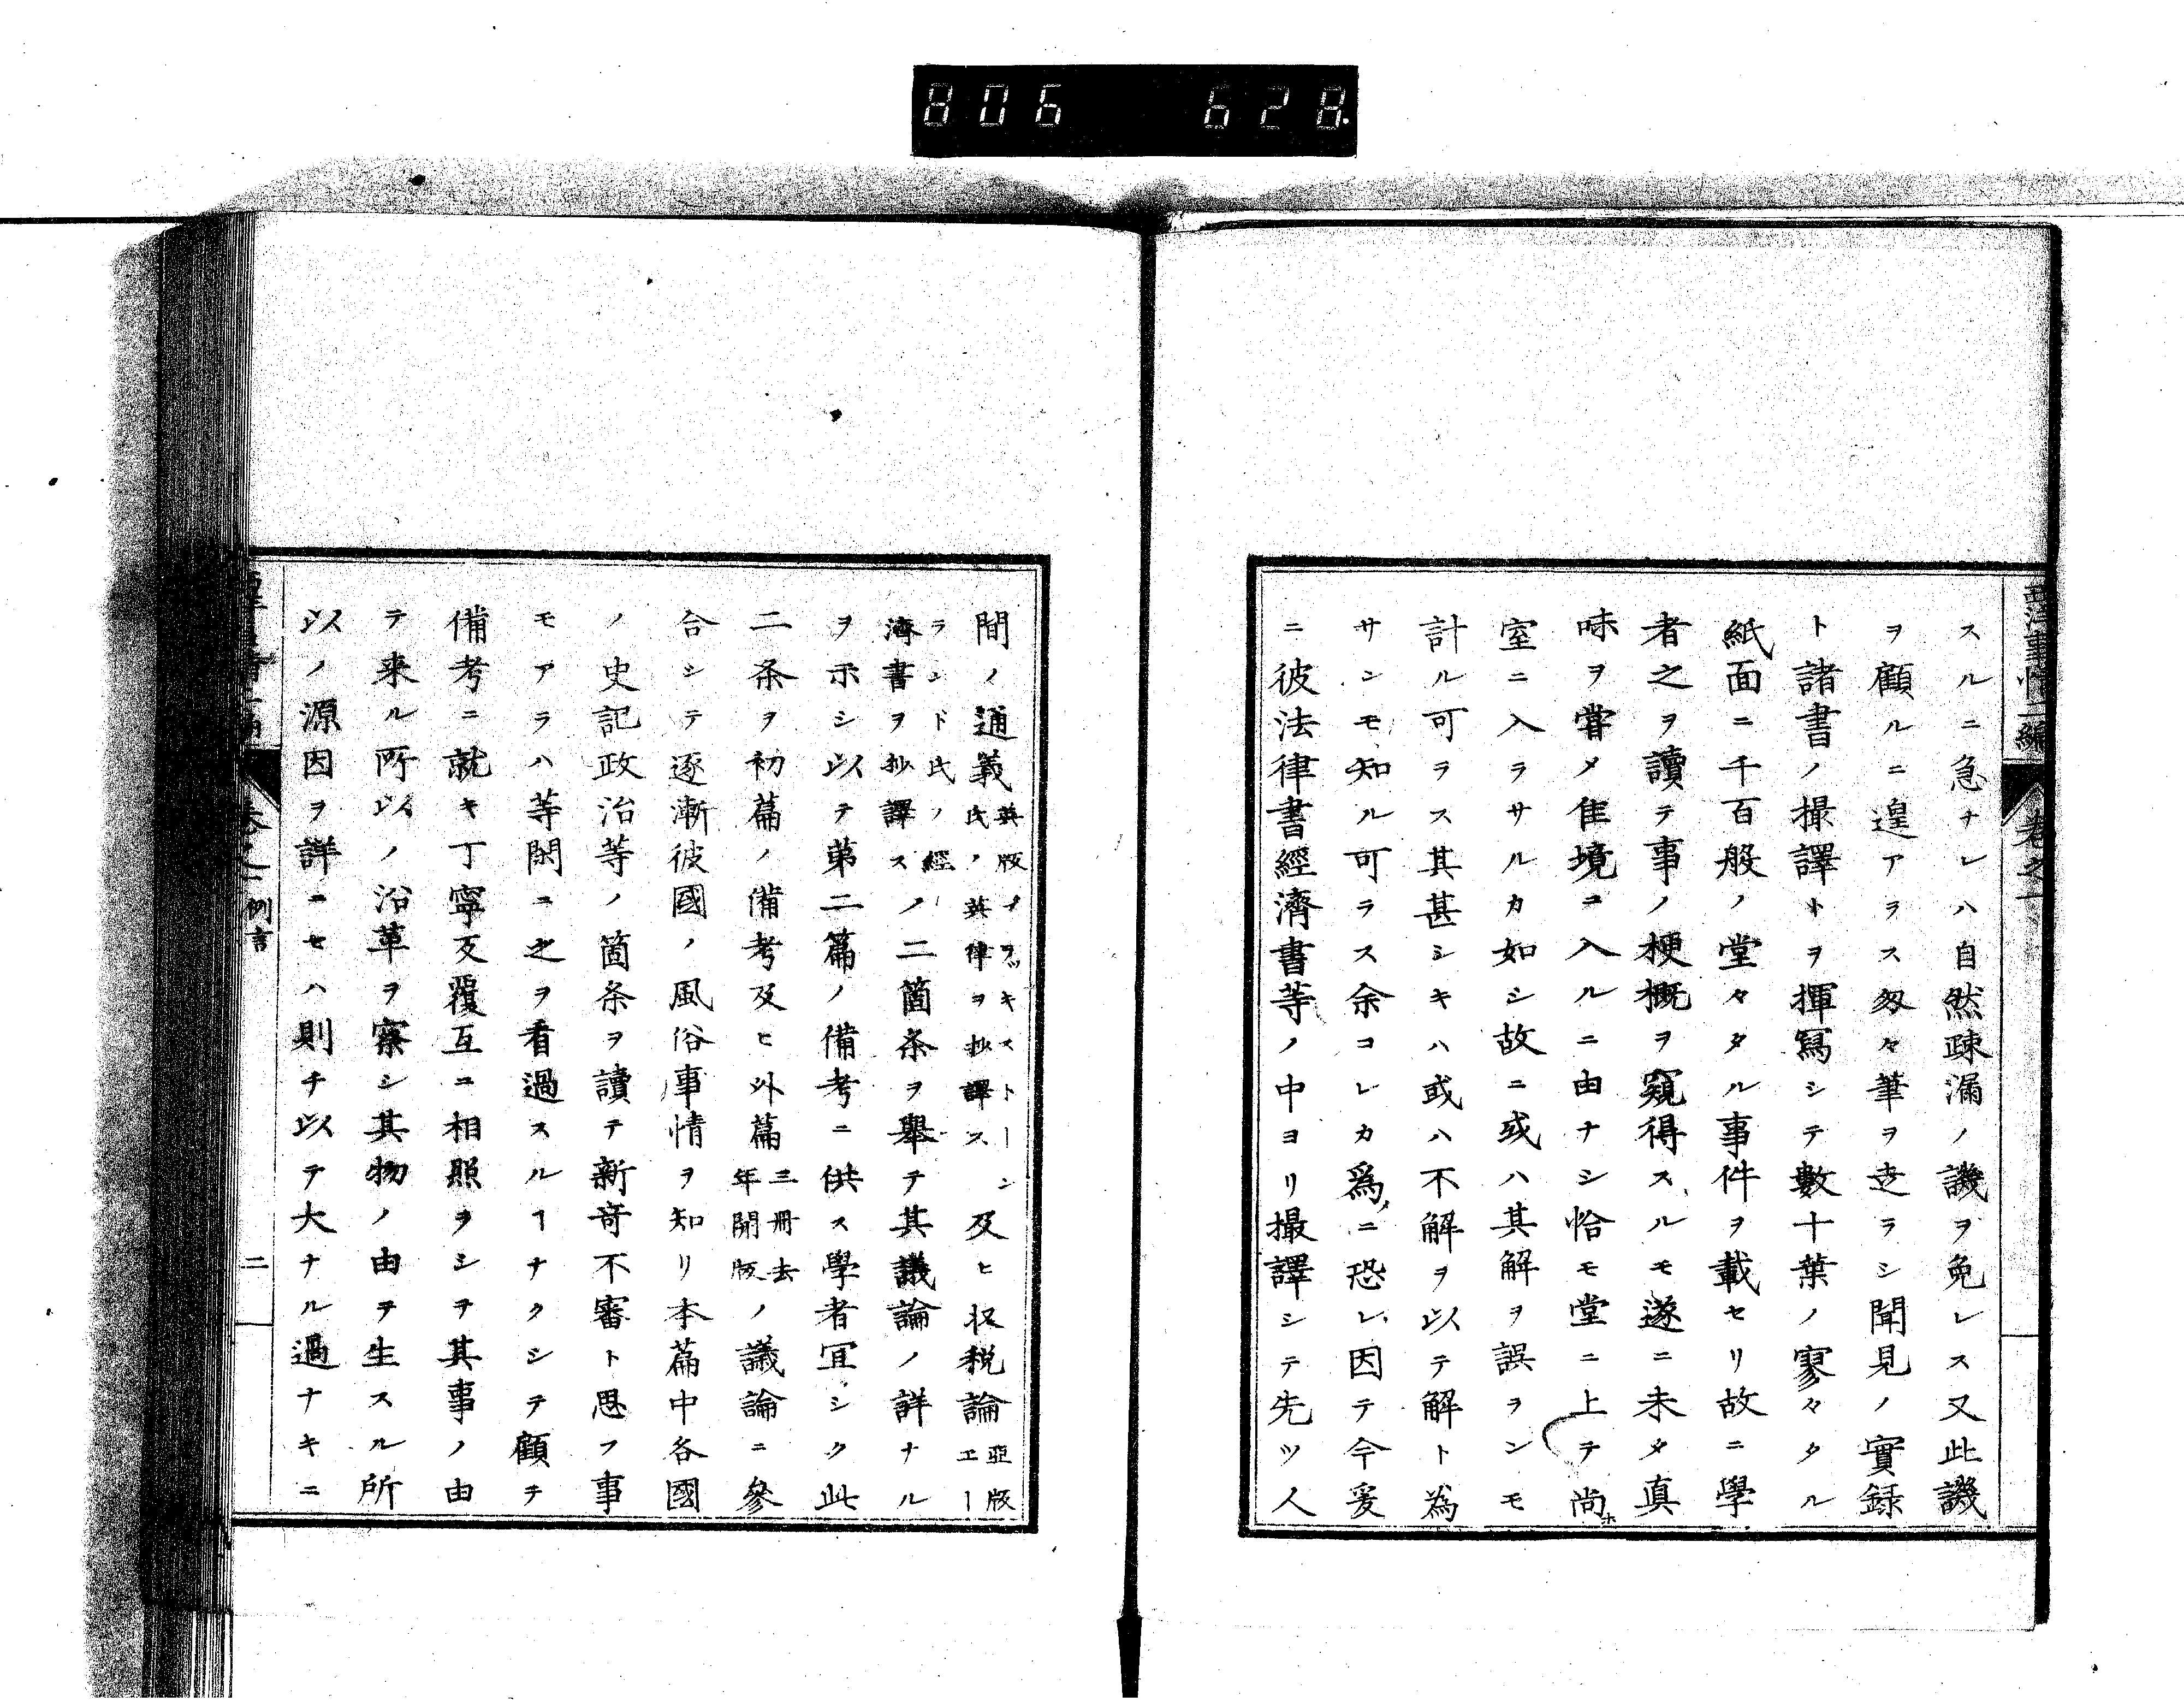 806 628
西洋事情二編 卷之一
スルニ急ナレハ自然疎漏ノ譏ヲ免レス又此譏
ヲ顧ルニ遑アラス匆々筆ヲ走ラシ聞見ノ實録
ト諸書ノ撮譯トヲ揮寫シテ數十葉ノ寥々タル
紙面ニ千百般ノ堂々タル事件ヲ載セリ故ニ學
者之ヲ讀テ事ノ梗概ヲ窺得スルモ遂ニ未タ真
味ヲ甞メ隹境ニ入ルニ由ナシ恰モ堂ニ上テ尚ホ
室ニ入ラサルカ如シ故ニ或ハ其解ヲ誤ランモ
計ル可ラス其甚シキハ或ハ不解ヲ以テ解ト為
サンモ知ル可ラス余コレカ爲ニ恐レ因テ今爰
ニ彼法律書經濟書等ノ中ヨリ撮譯シテ先ツ人
間ノ通義英版ブラッキストーン氏ノ英律ヲ抄譯ス及ヒ収税論亞版エー
ランド氏ノ經濟書ヲ抄譯スノ二箇条ヲ舉テ其議論ノ詳ナル
ヲ示シ以テ第二篇ノ備考ニ供ス學者冝シク此
二条ヲ初篇ノ備考及ヒ外篇三冊去年開版ノ議論ニ參
合シテ逐漸彼國ノ風俗事情ヲ知リ本篇中各國
ノ史記政治等ノ箇条ヲ讀テ新竒不審ト思フ事
モアラハ等閑ニ之ヲ看過スルヿナクシテ顧テ
備考ニ就キ丁寧反覆互ニ相照ラシヲ其事ノ由
テ来ル所以ノ沿革ヲ察シ其物ノ由テ生スル所
以ノ源因ヲ詳ニセハ則チ以テ大ナル過ナキニ
卷之一 例言 二